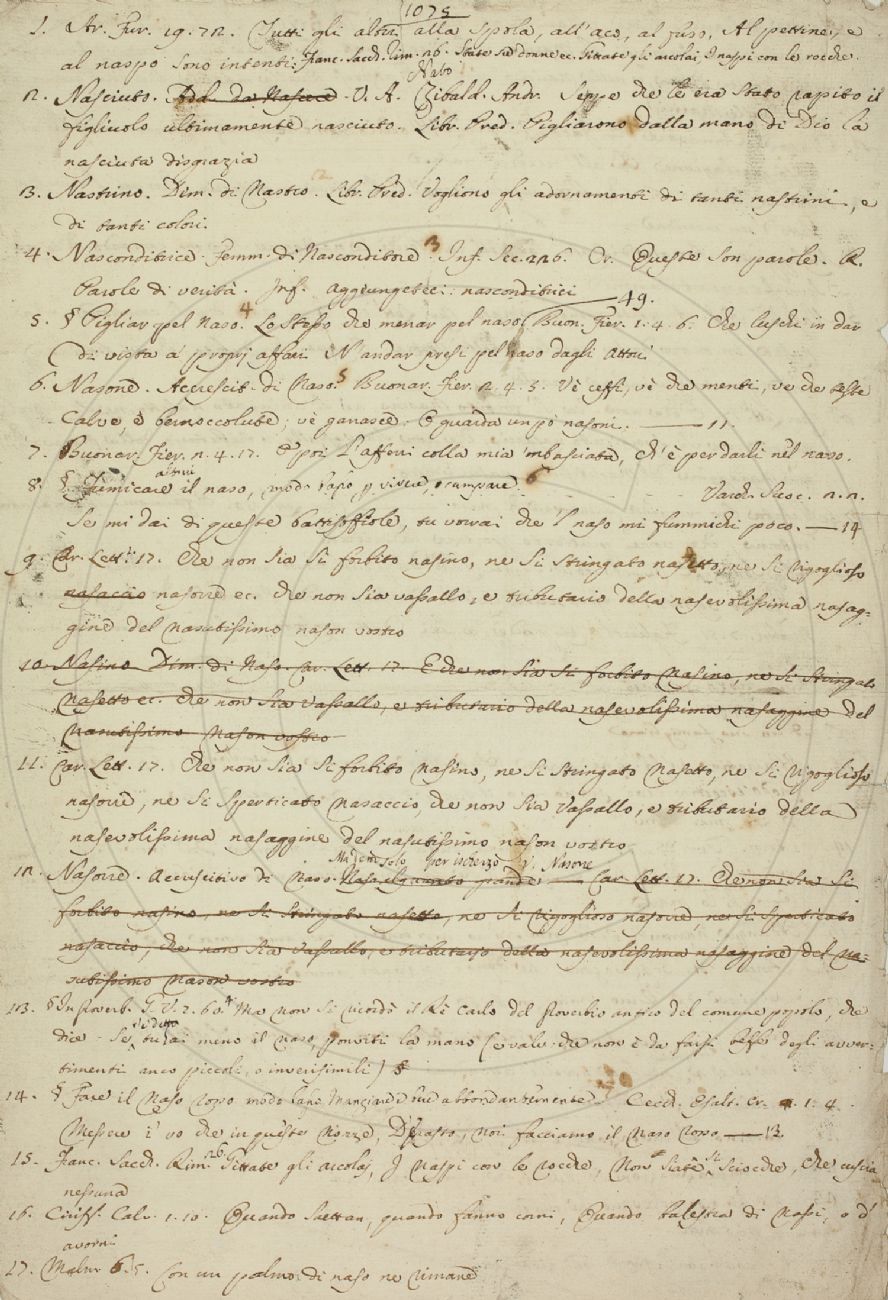 1075
1. Ar. Fur. 19. 72. Tutti gli altri alla spola, all'aco, al fuso, Al pettine, e
al naspo sono intenti. Franc. Sacch. Rim. 26. State su donne ec. Pittate gli arcolai, I naspi con le rocche.
Nato
12. Nasciuto. Add. da Nascere V. A. Zibald. Andr. Seppe che le era stato rapito il
figliuolo ultimamente nasciuto. Libr. Pred. Pigliarono dalla mano di Dio la
nasciuta disgrazia
13. Nastrino. Dim. di Nastro. Libr. Pred. Vogliono gli adornamenti di tanti nastrini, e
di tanti colori.
4. Nasconditrice Femm. di Nasconditore 3 Inf. Sec. 226. Or. Queste son parole. R.
Parole di verità. Inf. Aggiungeteci: nasconditrici 49.
5. § Pigliar pel Naso. 4 Lo stesso che menar pel naso. Buon. Fier. 1. 4. 6. Che luschi in dar
di vista a' proprj affari N'andar presi pel naso dagli attori
6. Nasone. Accrescit. di Naso. 5 Buonar. Fier. 2. 4. 3. Vè ceffi, vè che menti, ve che teste
Calve, e bernoccolute; vè ganasce: E guarda un pò nasoni. 11.
7. Buonar. Fier. n. 4. 17. E poi l'afferri colla mia 'mbasciata, ch'è per darli nel naso.
8. § Fumicare altrui il naso, modo 6 Varch. Suoc. 2. 2.
Se mi dai di queste battisoffiole, tu vorrai che 'l naso mi fummichi poco. 14
9. Car. Lett. 17. Che non sia si forbito nasino, ne si stringato nasetto, ne si rigoglioso
nasaccio nasorre ec. che non sia vassallo, e tributario della nasevolissima nasag-
gine del nasutissimo nason vostro
10. Nasino Dim. di Naso. Car. Lett. 17. E che non sia si forbito nasino, ne si stringato
nasetto ec. che non sia vassallo, e tributario della nasevolissima nasaggine del
nasutissimo nason vostro
11. Car. Lett. 17. Che non sia si forbito nasino, ne si stringato nasetto, ne si rigoglioso
nasorre, ne si sperticato nasaccio, che non sia vassallo, e tributario della
nasevolissima nasaggine del nasutissimo nason vostro
per ischerzo V. Nasone
12. Nasorre. Accrescitivo di Naso. Naso alquanto grande Car. Lett. 17. Che non sia si
forbito nasino, ne si stringato nasetto, ne si rigoglioso nasorre, ne si sperticato
nasaccio, che non sia vassallo, e tributario della nasevolissima nasaggine del na-
sutissimo nason vostro
13. § In Proverb. G. V. 7. 60. Ma non si ricordò il Rè Carlo del proverbio antico del comune popolo, che
dice Se tu ai meno il naso, ponviti la mano (e vale che non è da farsi beffe degli avver-
timenti anco piccoli, o inverisimili)
14. § Fare il Naso rosso modo Mangiare, e bere abbondantemente. Cecch. Esalt. Cr. 1. 4.
Messere i' vo che in queste Nozze, D'accasto, noi facciamo il naso rosso 12
15. Franc. Sacch. Rim. 26. Pittate gli arcolaj, I naspi con le rocche, Non siate si sciocche, che cuscia
nessuna
16. Ciriff. Calv. 1. 10. Quando saettan, quando fanno corni, Quando balestra di nassi, o d'
avorni
17. Malm. 6. 5. Con un palmo di naso ne rimane